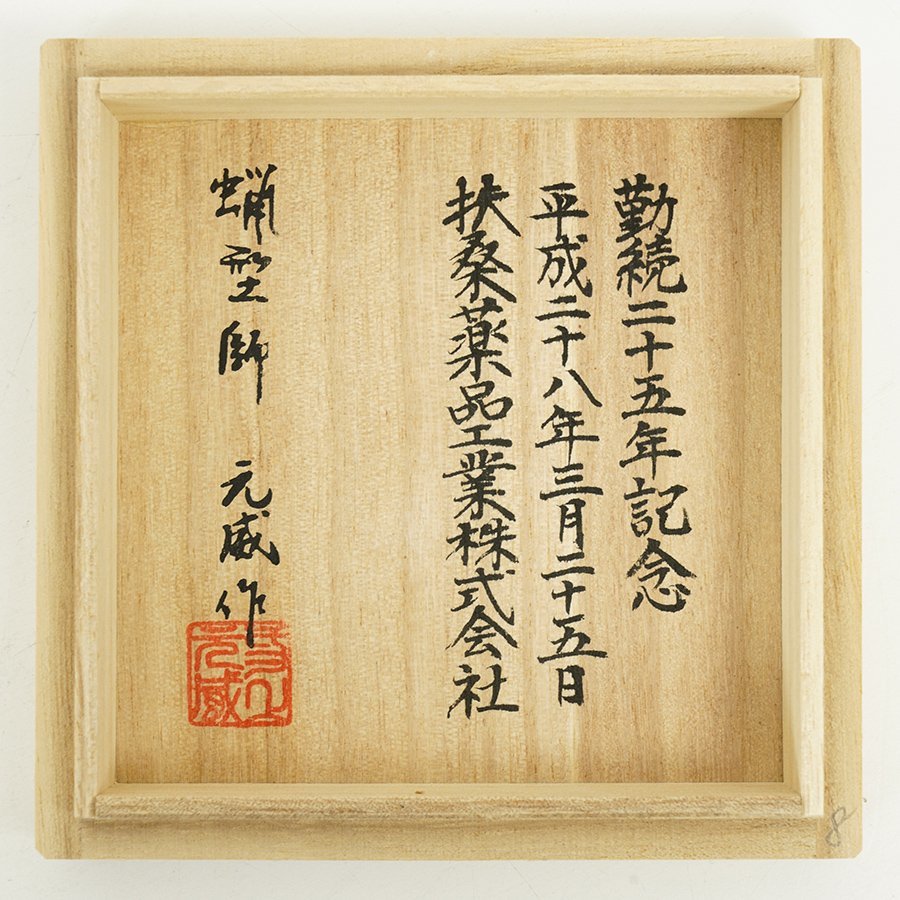 勤続二十五年記念
平成二十八年三月二十五日
扶桑薬品工業株式会社
蝋型師 元威作
元威